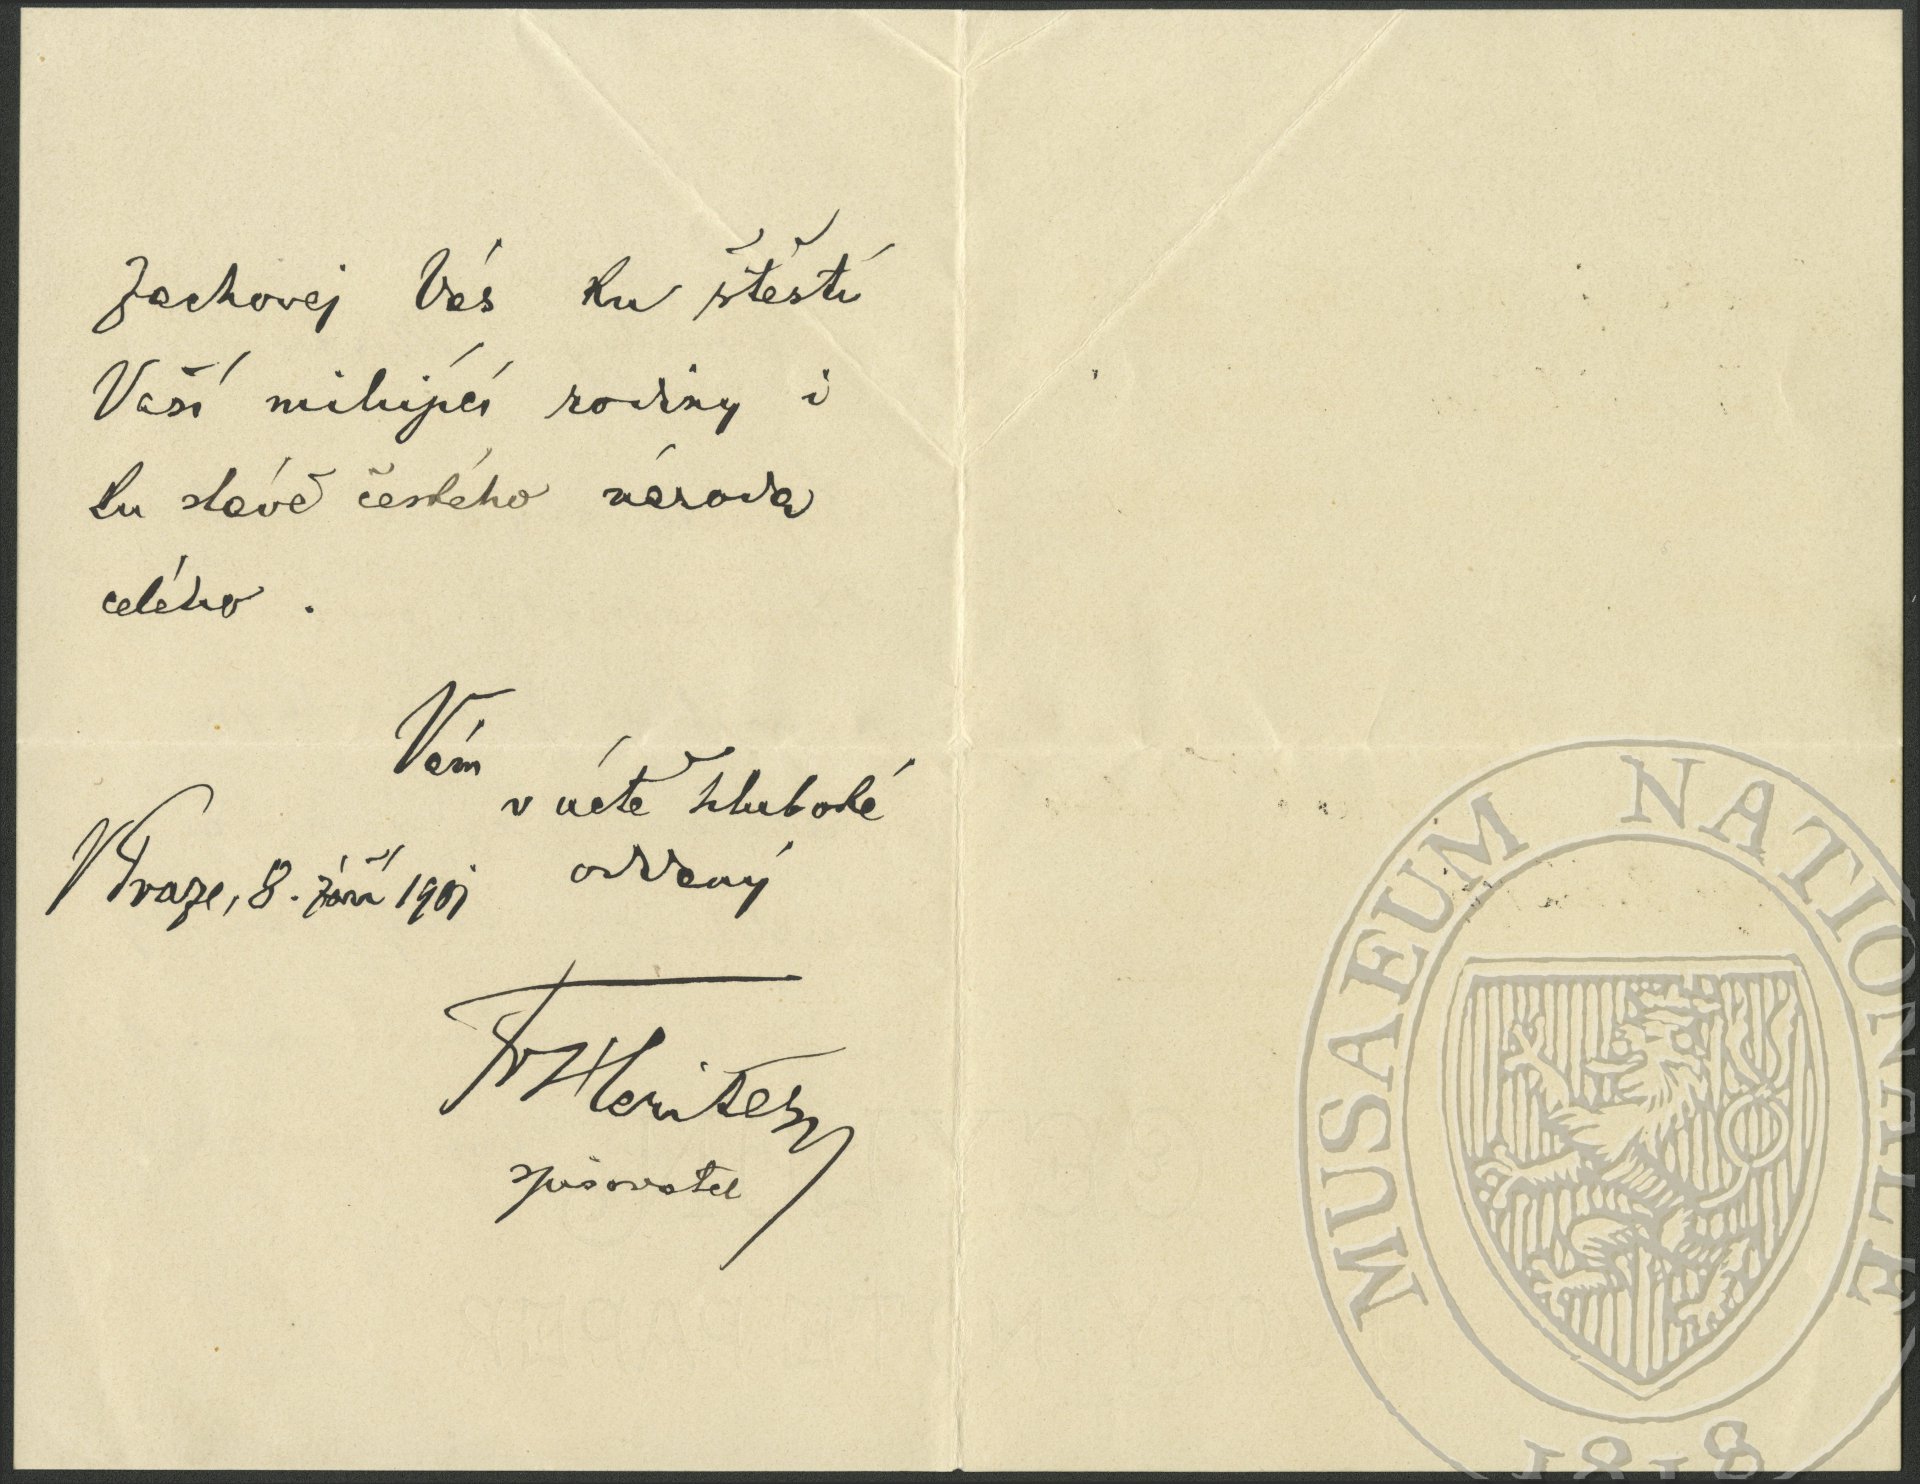 Zachovej Vás ku štěstí
Vaší milující rodiny i
ku slávě českého národa
celého.
Vám
v úctě hluboké
oddaný
V Praze, 8. září 1901
Fr Herites
spisovatel
MUSAEUM NATIONALE
1818